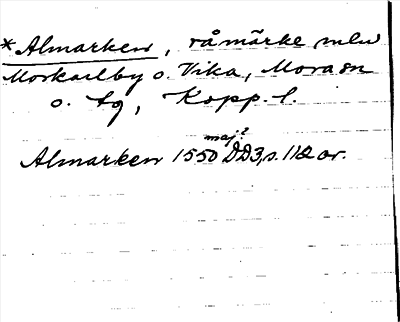 *Almarken, råmärke mln
Morkarlby o. Vika, Mora sn
o. tg, Kopp. l.
maj?
Almarken 1550 DD3, s. 112 or.